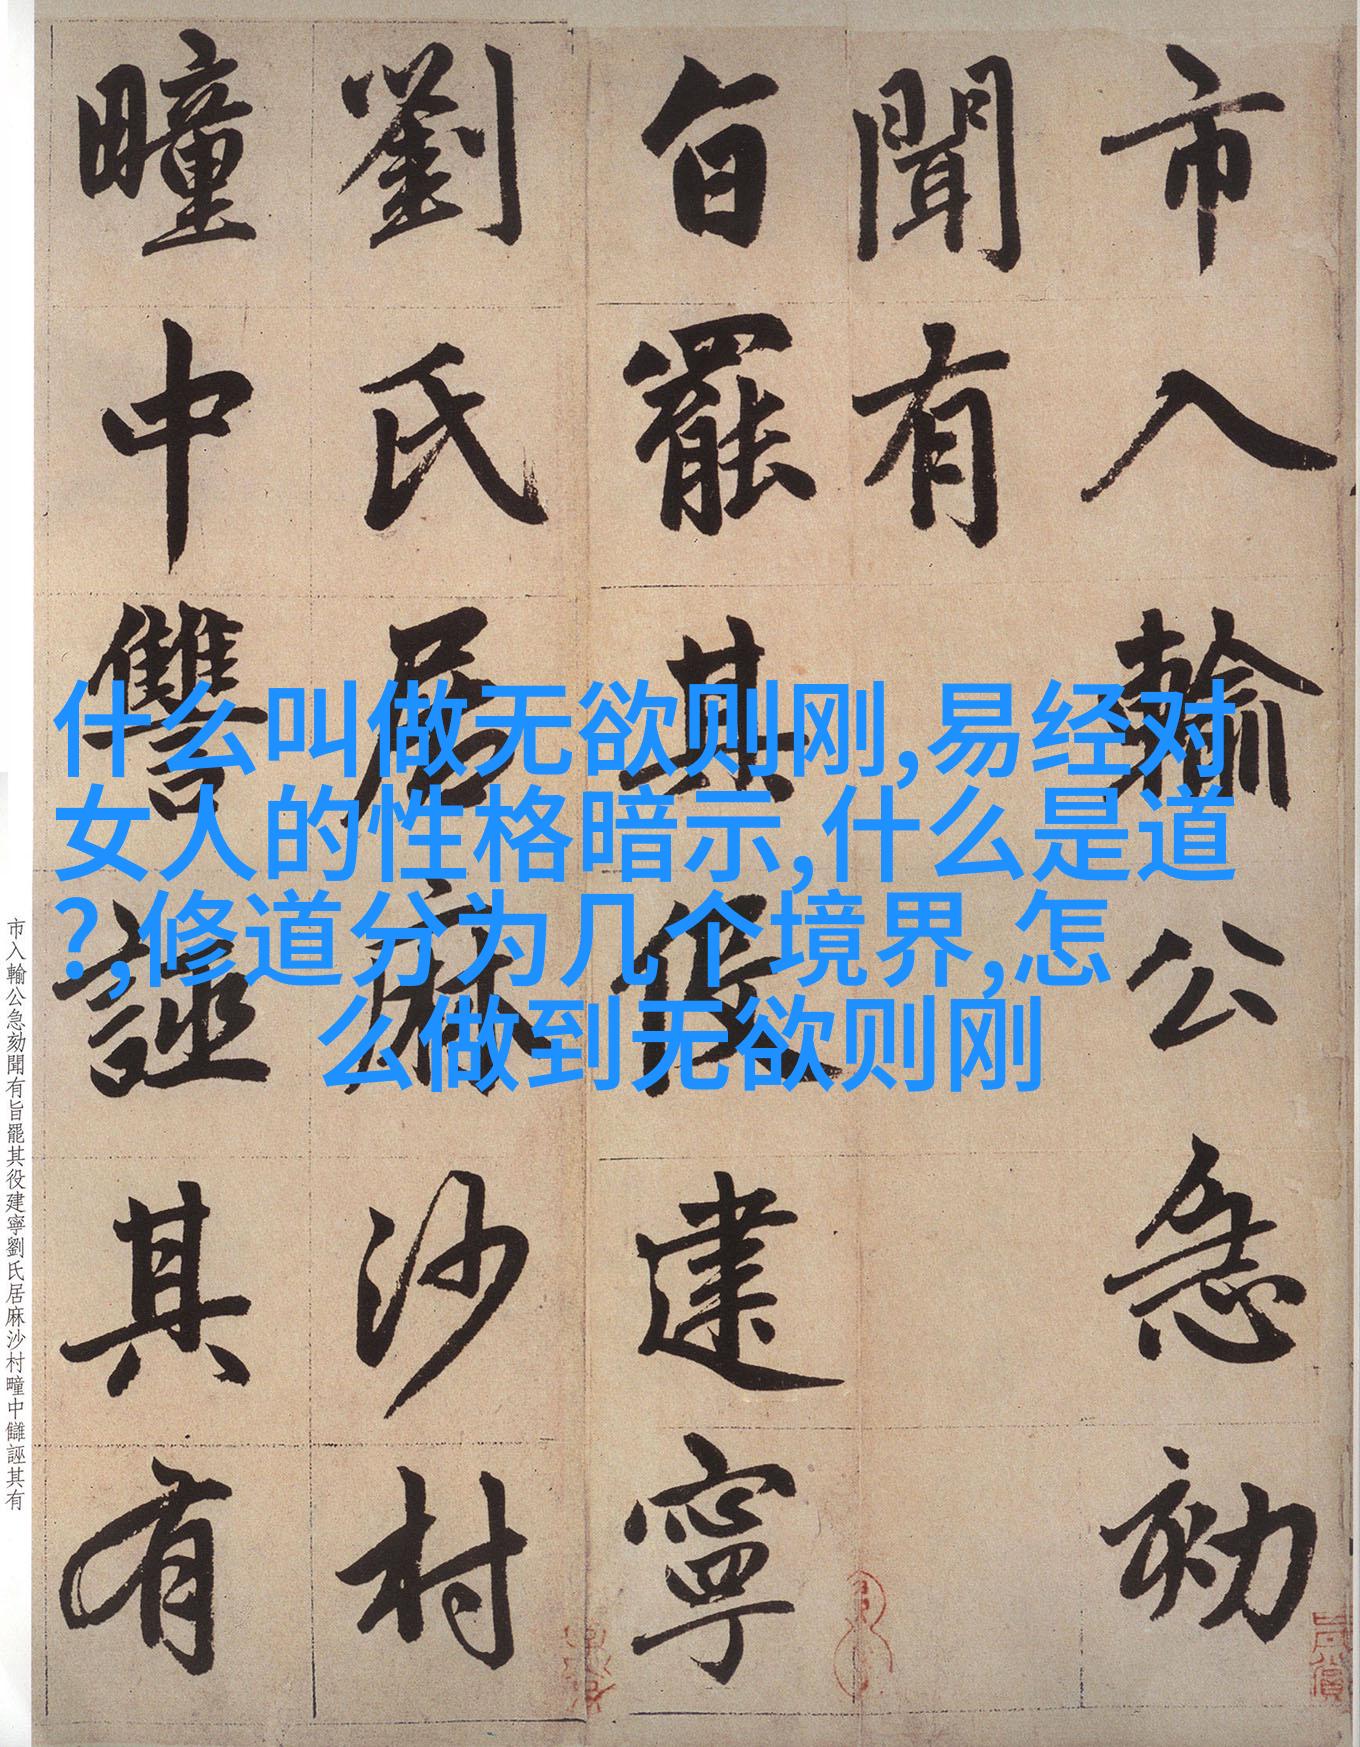 什么叫做无欲则刚,易经对
女人的性格暗示,什么是道
?,修道分为几个境界,怎
么做到无欲则刚
市入輸公急劾
聞有
旨罷其役建寧
劉氏居麻沙村
疃中讐誣其有
市入輸公急劾聞有旨罷其役建寧劉氏居麻沙村疃中讎誣其有